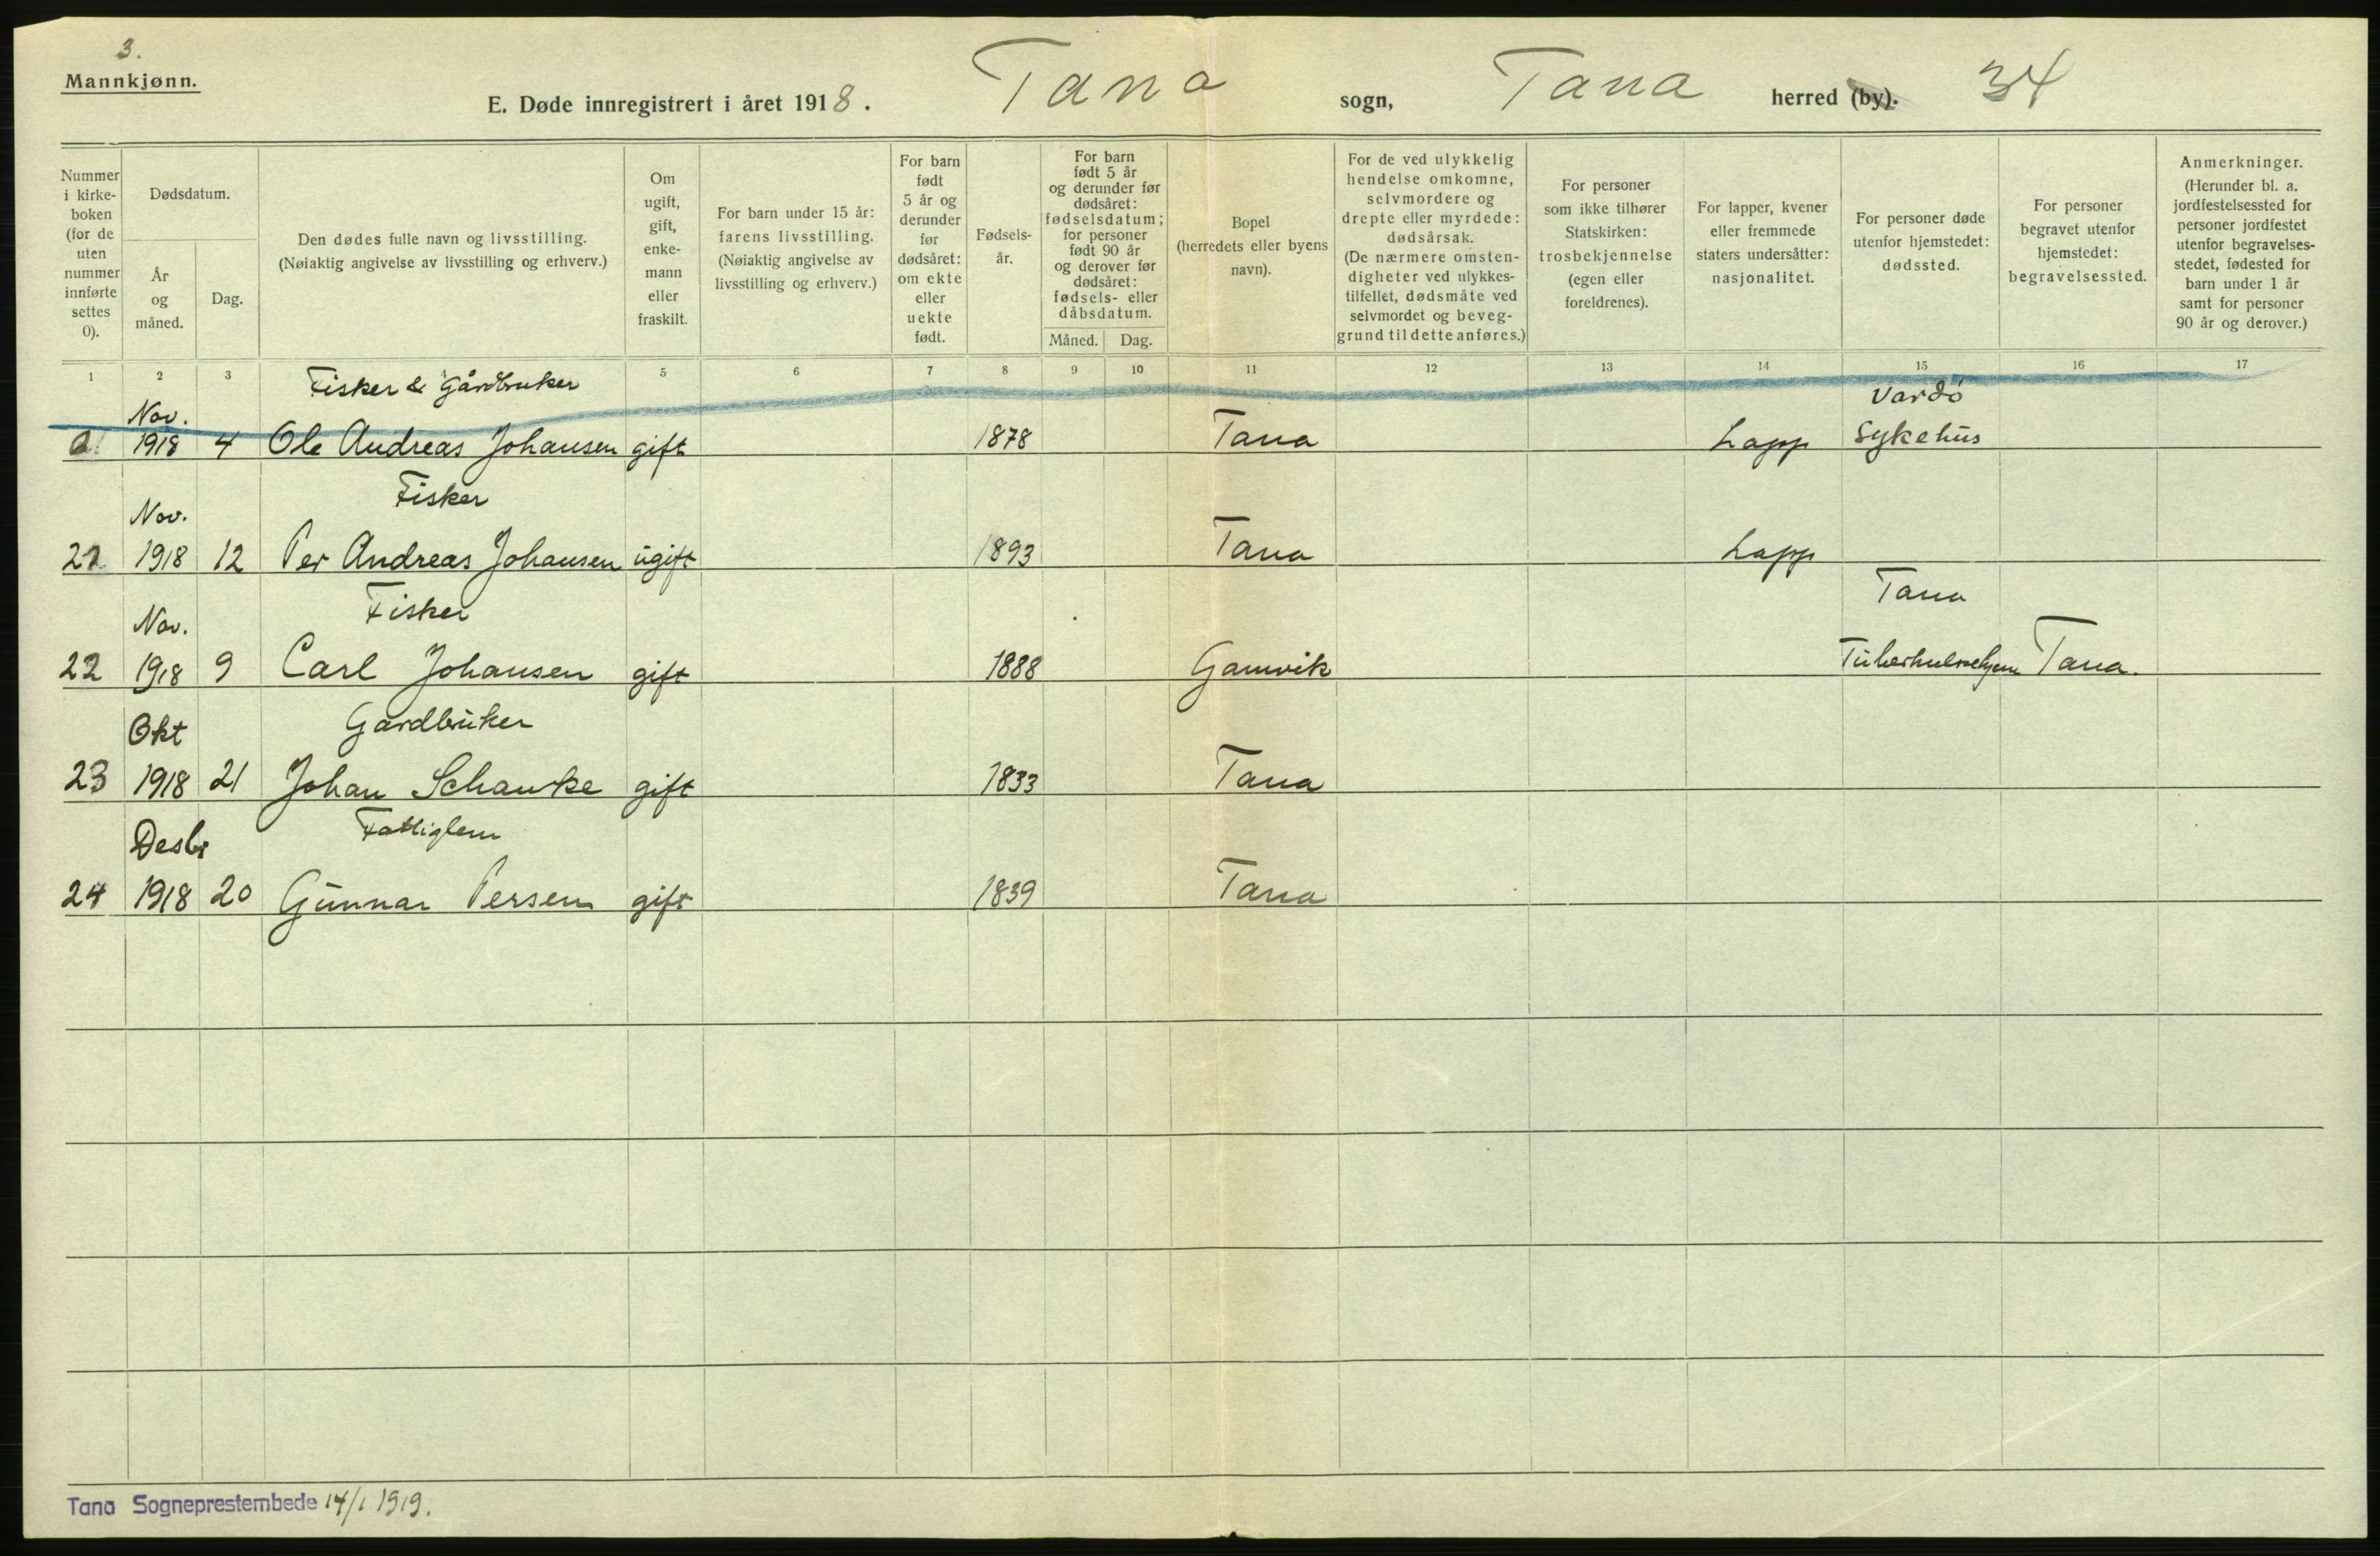 3.
Mannkjønn.
E. Døde innregistrert i året 1918. Tana sogn, Tana herred (by). 34
Nummer i kirke- boken (for de uten nummer innførte settes 0).
Dødsdatum.
År og måned.
Dag.
Den dødes fulle navn og livsstilling. (Nøiaktig angivelse av livsstilling og erhverv.)
Om ugift, gift, enke- mann eller fraskilt.
For barn under 15 år: farens livsstilling. (Nøiaktig angivelse av livsstilling og erhverv.)
For barn født 5 år og derunder før dødsåret: om ekte eller uekte født.
Fødsels- år.
For barn født 5 år og derunder før dødsåret: fødselsdatum; for personer født 90 år og derover før dødsåret: fødsels- eller dåbsdatum.
Måned. Dag.
Bopel (herredets eller byens navn).
For de ved ulykkelig hendelse omkomne, selvmordere og drepte eller myrdede: dødsårsak. (De nærmere omsten- digheter ved ulykkes- tilfellet, dødsmåte ved selvmordet og beveg- grund til dette anføres.)
For personer som ikke tilhører Statskirken: trosbekjennelse (egen eller foreldrenes).
For lapper, kvener eller fremmede staters undersåtter: nasjonalitet.
For personer døde utenfor hjemstedet: dødssted.
For personer begravet utenfor hjemstedet: begravelsessted.
Anmerkninger. (Herunder bl. a. jordfestelsessted for personer jordfestet utenfor begravelses- stedet, fødested for barn under 1 år samt for personer 90 år og derover.)
1 2 3 5 6 7 8 9 10 11 12 13 14 15 16 17
Nov. Fisker & Gårdbruker Vardö
1918 4 Ole Andreas Johansen gift 1878 Tana Lapp Sykehus
Nov. Fisker
1918 12 Per Andreas Johansen ugift 1893 Tana Lapp
Nov. Fisker Tana
22 1918 9 Carl Johansen gift 1888 Gamvik Tuberkulosehjem Tana.
Okt Gardbruker
23 1918 21 Johan Schanke gift 1833 Tana
Desbr Fattiglem
24 1918 20 Gunnar Persen gift 1839 Tana
Tana Sogneprestembede 14/1 1919.